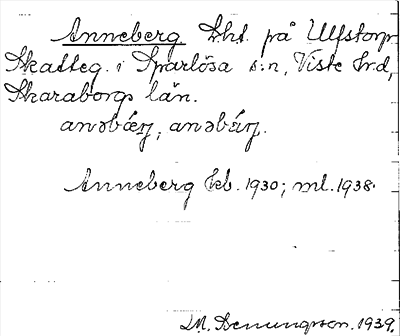 Anneberg Lht. på Ulfstorp
Skatteg. i Sparlösa s:n, Viste hrd,
Skaraborgs län.
anəbǽrj, anəbárj.
Anneberg kb. 1930; ml. 1938.
M. Bennungson. 1939.